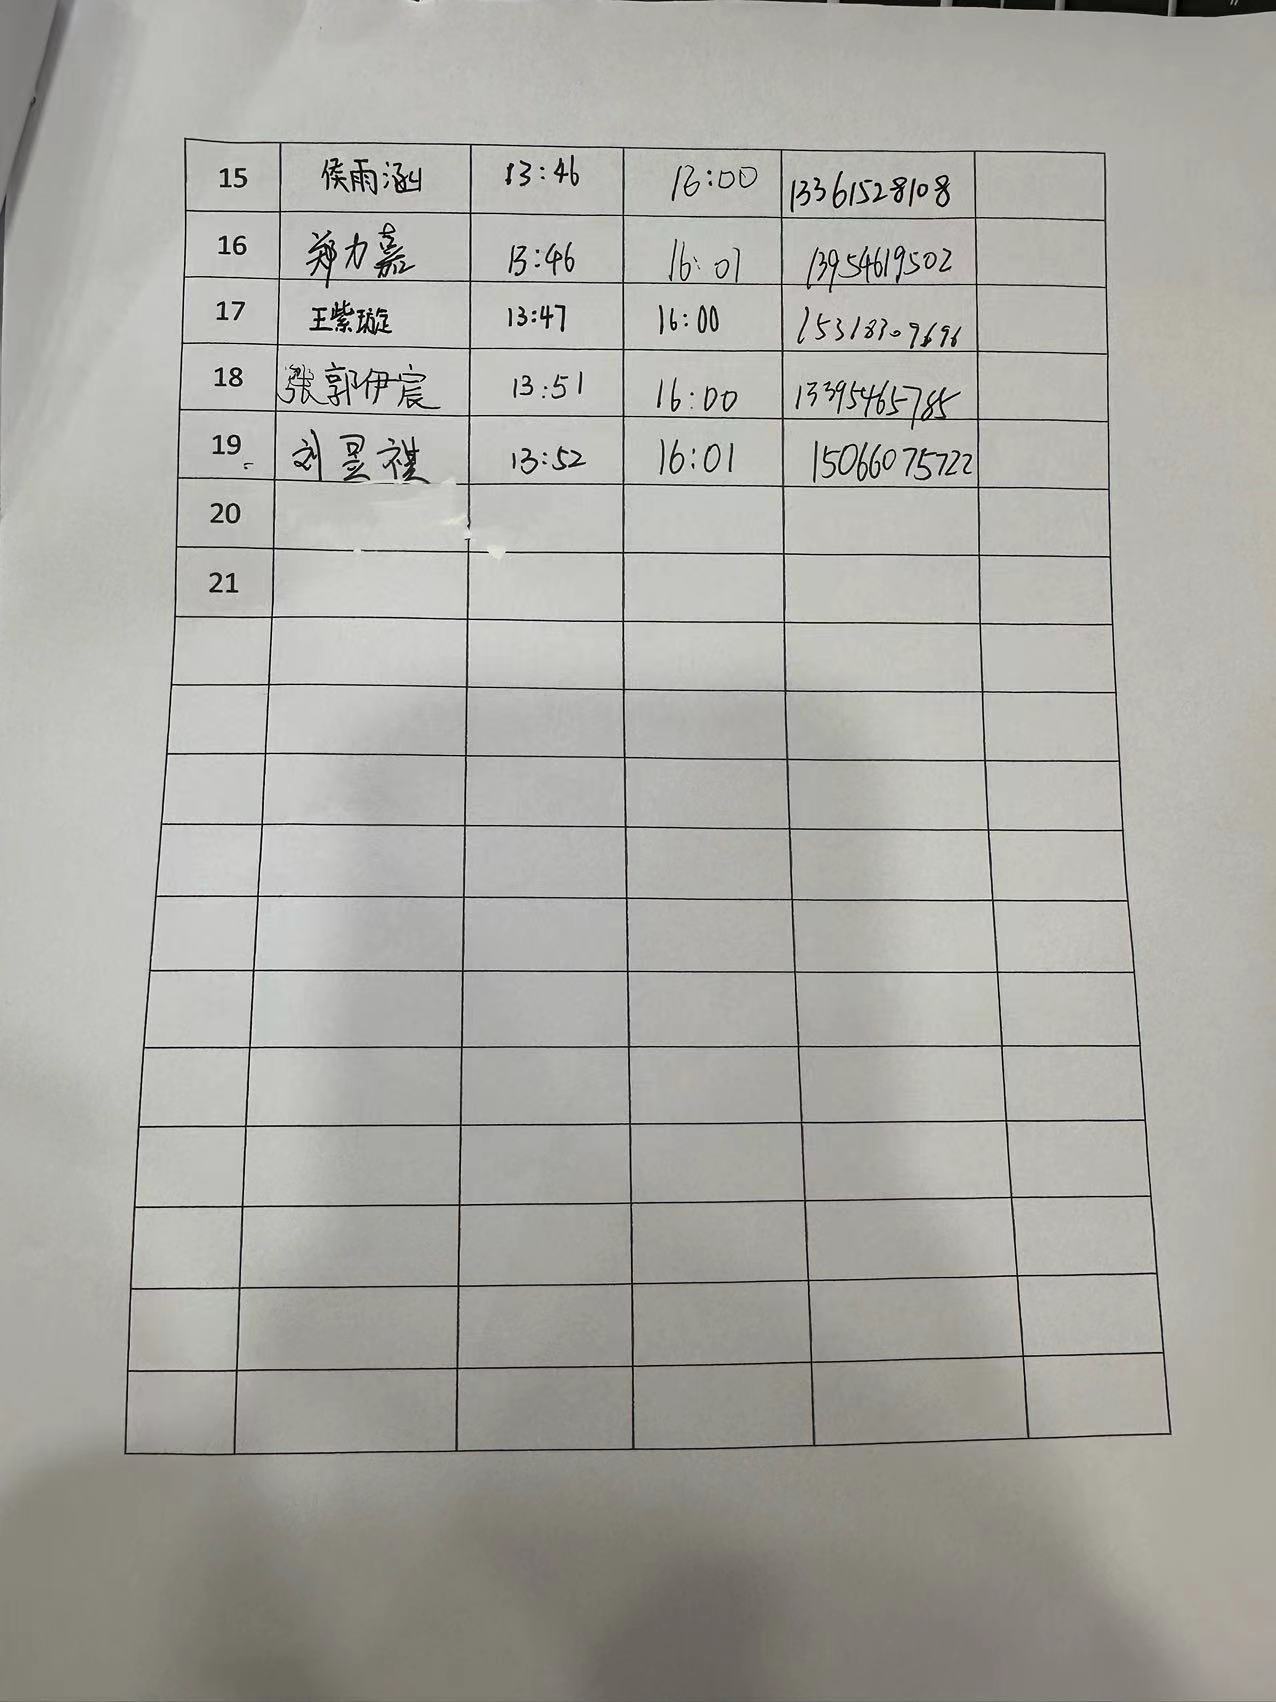 15 侯雨涵 13:46 16:00 13361528108
16 郑力嘉 13:46 16:01 13954619502
17 王紫璇 13:47 16:00 15318309696
18 张郭伊宸 13:51 16:00 13395465785
19 刘昱祺 13:52 16:01 15066075722
20
21